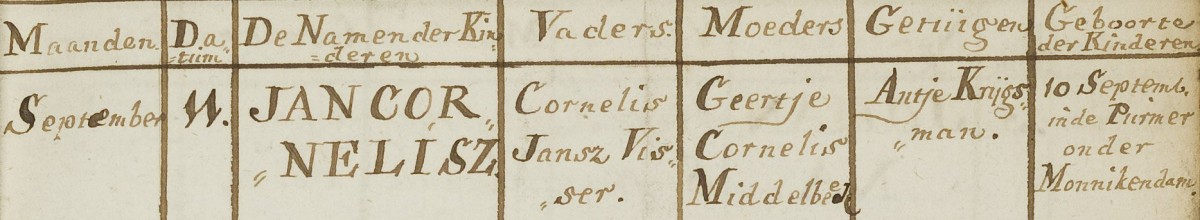 Maanden.
Da„
„tum
De Namen der Kin„
„deren
Vaders.
Moeders
Getüigen
Geboorte
der Kinderen
September
11.
JAN COR„
„NELISZ.
Cornelis
Jansz Vis„
„ser.
Geertje
Cornelis
Middelbeek
Antje Krijgs„
„man.
10 Septemb.
in de Purmer
onder
Monnikendam.